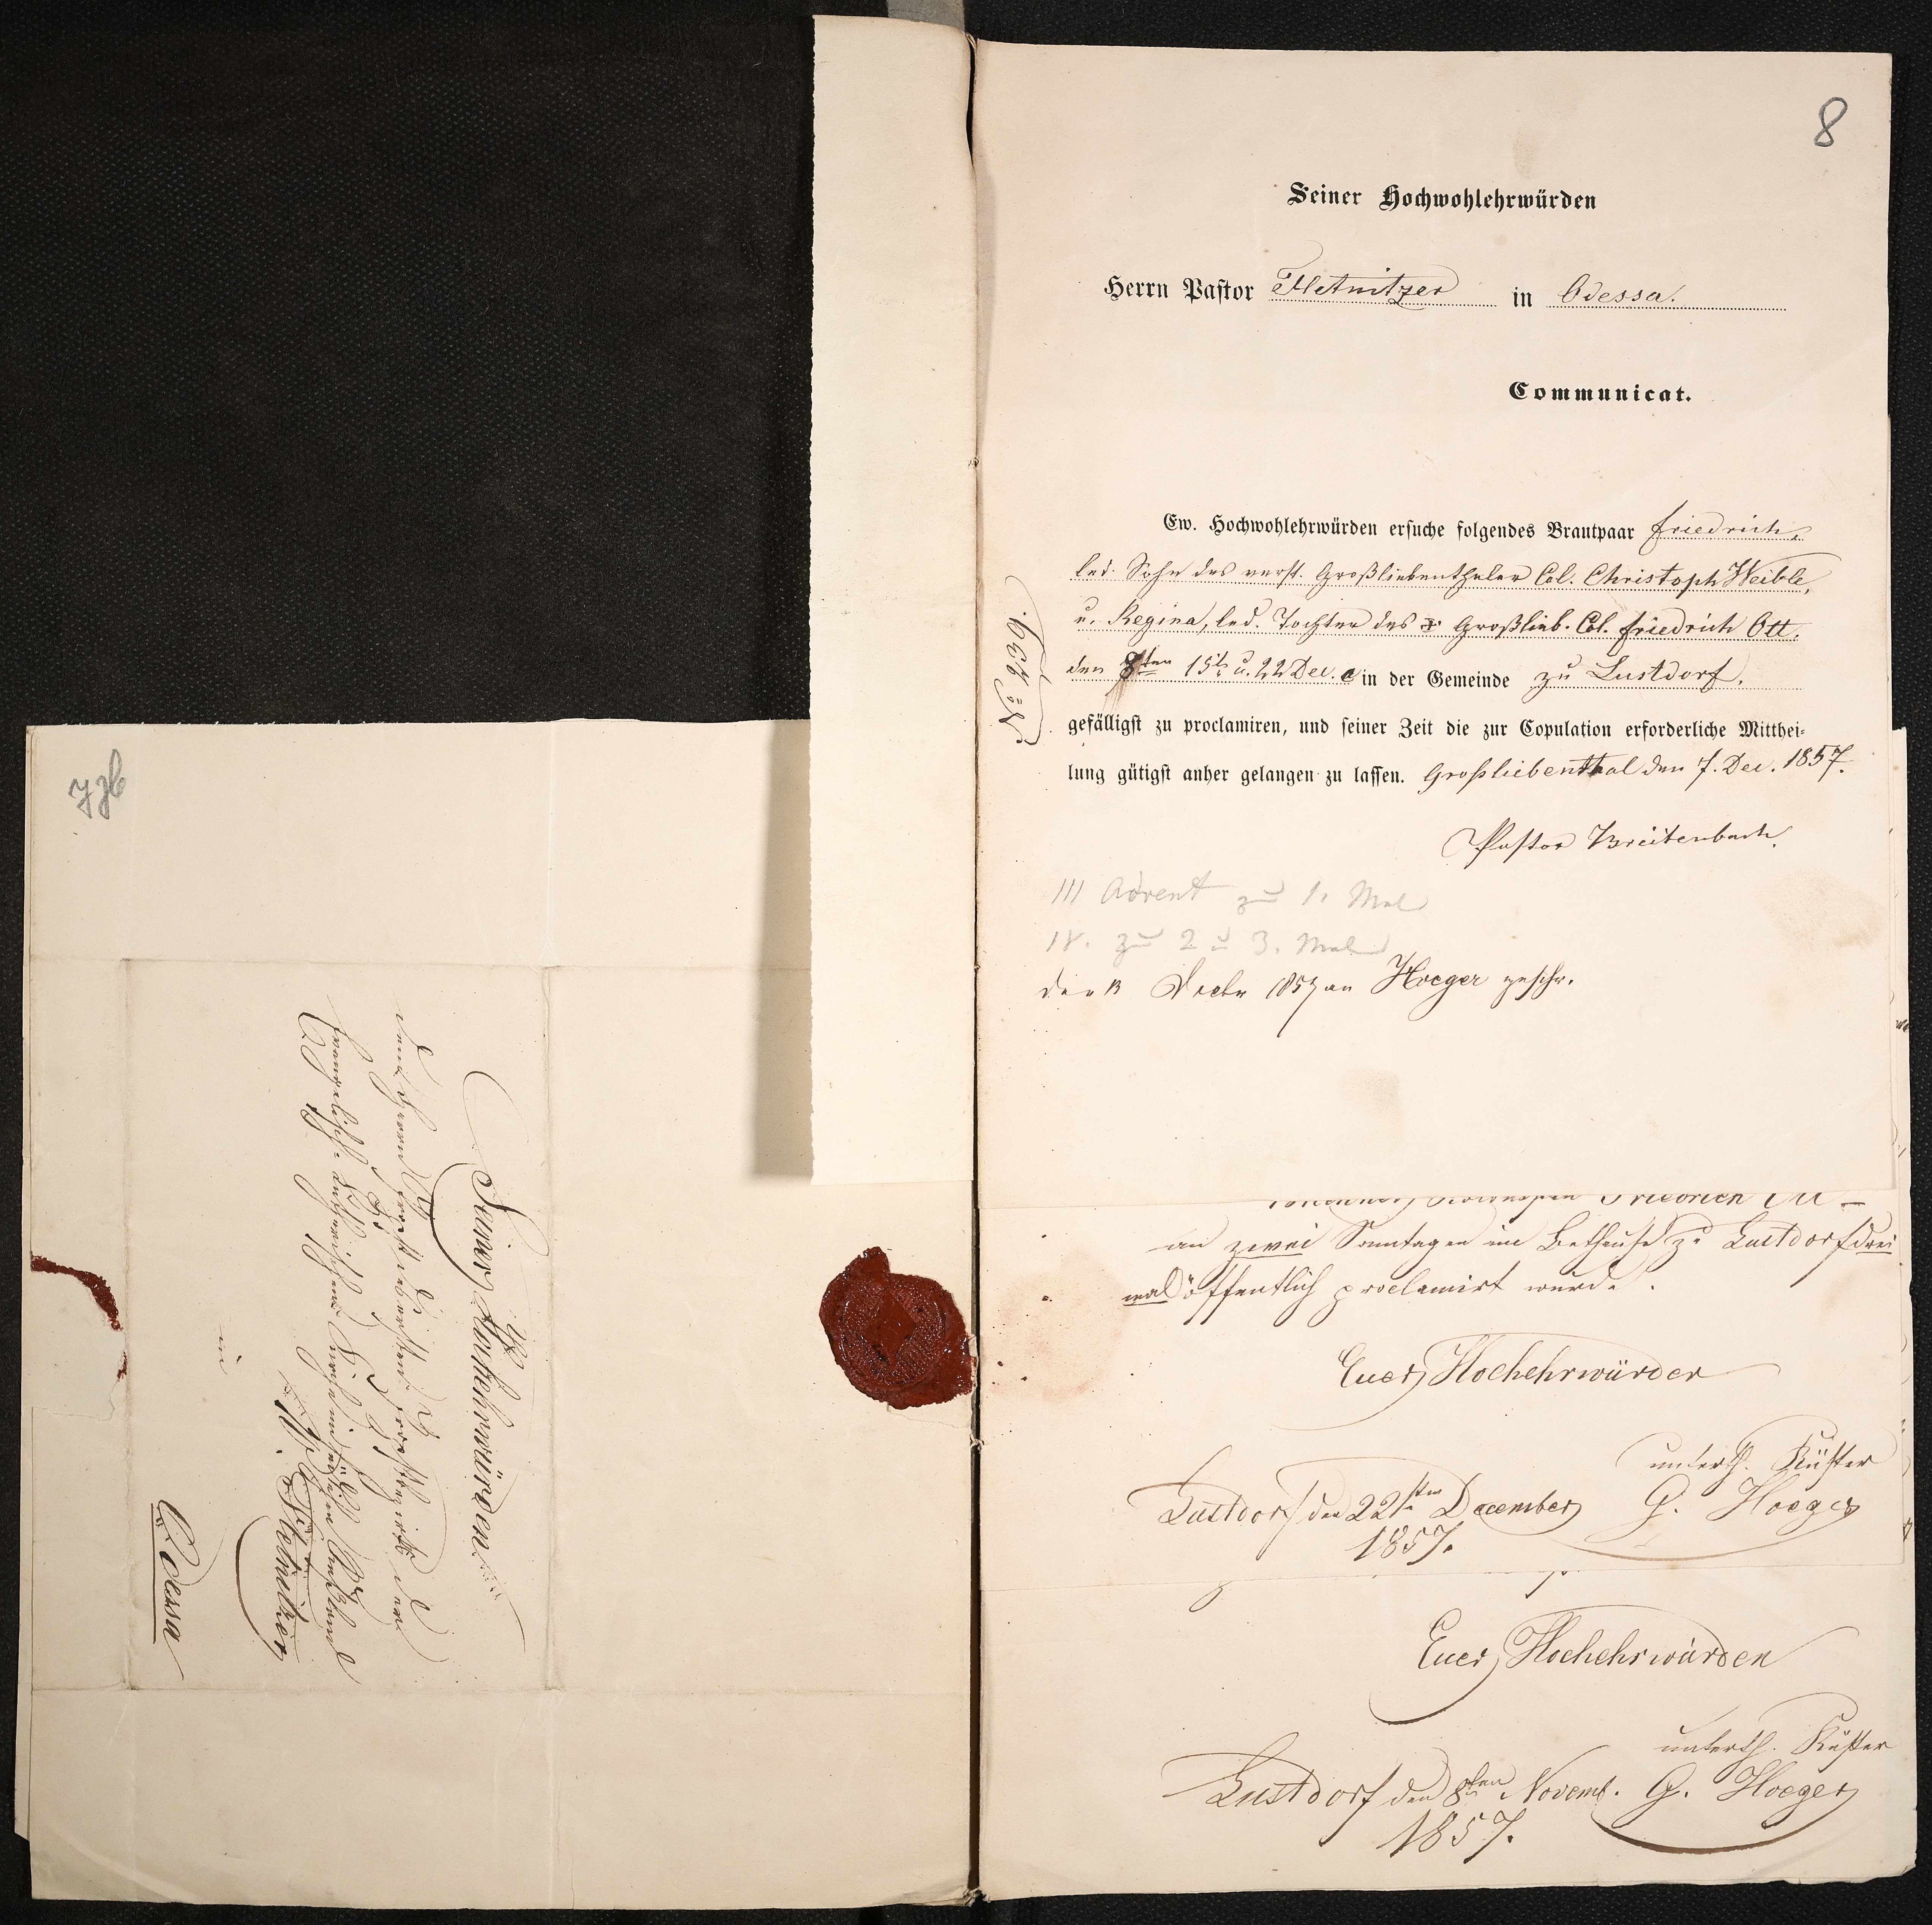 8
Seiner Hochwohlehrwürden
Herrn Pastor Fletnitzer in Odessa.
Communicat.
Ew. Hochwohlehrwürden ersuche folgendes Brautpaar Friedrich,
led. Sohn des verst. Großliebenthaler Col. Christoph Weible,
u. Regina, led. Tochter des Großlieb. Col. Friedrich Ott.
den 8ten 15t. u. 22 Dec. c in der Gemeinde zu Lustdorf.
gefälligst zu proclamiren, und seiner Zeit die zur Copulation erforderliche Mitthei-
lung gütigst anher gelangen zu lassen. Großliebenthal den 7. Dec. 1857.
Pastor Breitenbach.
No. 939.
III Advent zu 1. Mal
IV. zu 2 u 3. Mal
den 13 Decbr 1857 an Hoeger geschr.
Friedrich
an zwei Sonntagen im Bethause zu Lustdorf drei
mal öffentlich proclamirt wurde.
Euer Hochehrwürden
unterth. Küster
Lustdorf den 22sten December G. Hoeger
1857.
Euer Hochehrwürden
unterth. Küster
Lustdorf den 8ten Novemb. G. Hoeger
1857.
Seiner Hochehrwürden
dem Herrn
evangelisch-lutherischen
Fletnitzer
in
Odessa